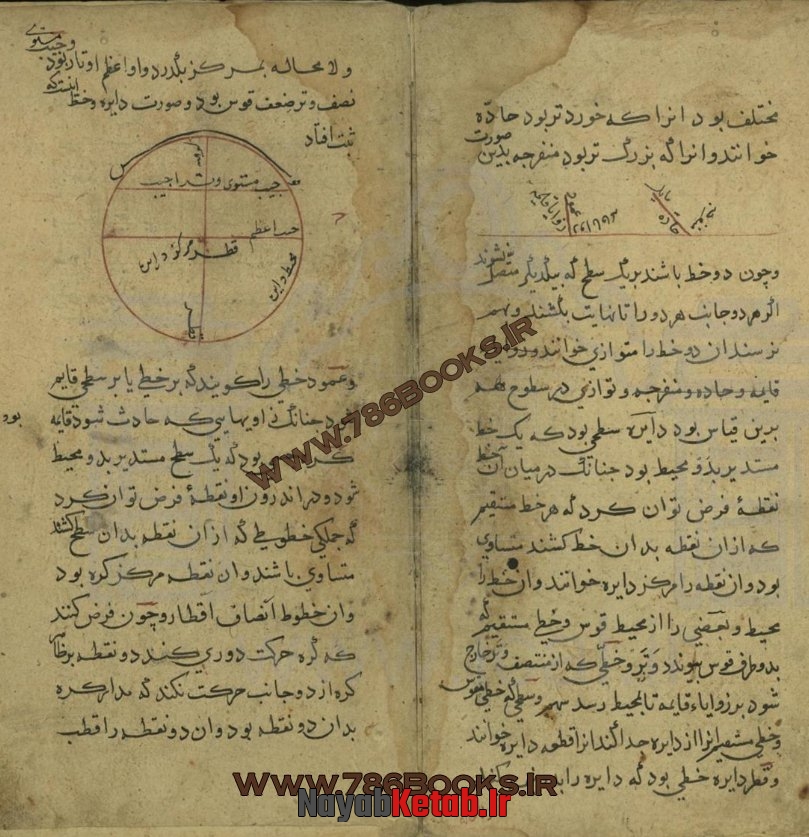 مختلف بود انرا که خوردتر بود حادّه
خوانند و انرا که بزرگ تر بود منفرجه بدین صورت
حاده
عمود
و چون دو خط باشند بر یک سطح که بیکدیگر متصل نشوند
اگر هر دو جانب هر دو را تا نهایت بکشند و بهم
نرسند ان دو خط را متوازی خوانند و زاویه
قایمه و حاده و منفرجه و توازی در سطوح هم
برین قیاس بود دایره سطحی بود که یک خط
مستدیر بدو محیط بود چنانک در میان آن خط
نقطهٔ فرض توان کرد که هر خط مستقیم
که از ان نقطه بدان خط کشند متساوی
بود وان نقطه را مرکز دایره خوانند وان خط را
محیط و بعضی را از محیط قوس و خطی مستقیم که
بدو طرف قوس پیوندد وتر و خطی که از منتصف وتر خارج
شود بر زوایاء قایمه تا بمحیط رسد سهم و سطحی که خطی قوس
و خطی مستقیم انرا از دایره جدا کند انرا قطعه دایره خوانند
و قطر دایره خطی بود که دایره را بدو
و لا محاله بمرکز بگذرد و او اعظم اوتار بود و جیب مستوی
نصف وتر ضعف قوس بود و صورت دایره و خط اینست که
ثبت افتاد
سهم
جیب مستوی
وتر
جیب اعظم
قطر
مرکز دایره
محیط دایره
قطر
و عمود خطی را کویند که بر خطی یا بر سطحی قایم
شود چنانک زاویهایی که حادث شود قایمه بود
کره بود که یک سطح مستدیر بدو محیط
شود و در اندرون او نقطهٔ فرض توان کرد
که جملکی خطوطی که از ان نقطه بدان سطح کشند
متساوی باشند وان نقطه مرکز کره بود
وان خطوط انصاف اقطار و چون فرض کنند
که کره حرکت دوری کند دو نقطه بر ظاهر
کره از دو جانب حرکت نکند که مدار کره
بدان دو نقطه بود وان دو نقطه را قطب
www.786Books.IR
www.786Books.IR
www.786Books.IR
NayabKetab.Ir